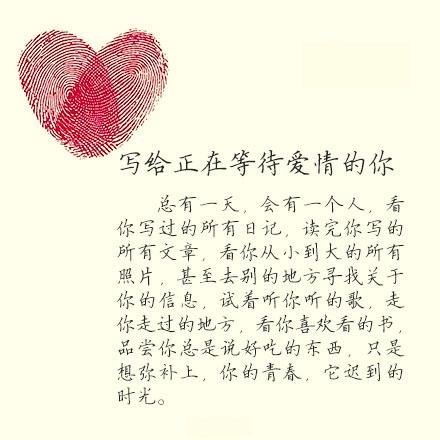 写给正在等待爱情的你
总有一天，会有一个人，看
你写过的所有日记，读完你写的
所有文章，看你从小到大的所有
照片，甚至去别的地方寻找关于
你的信息，试着听你听的歌，走
你走过的地方，看你喜欢看的书，
品尝你总是说好吃的东西，只是
想弥补上，你的青春，它迟到的
时光。